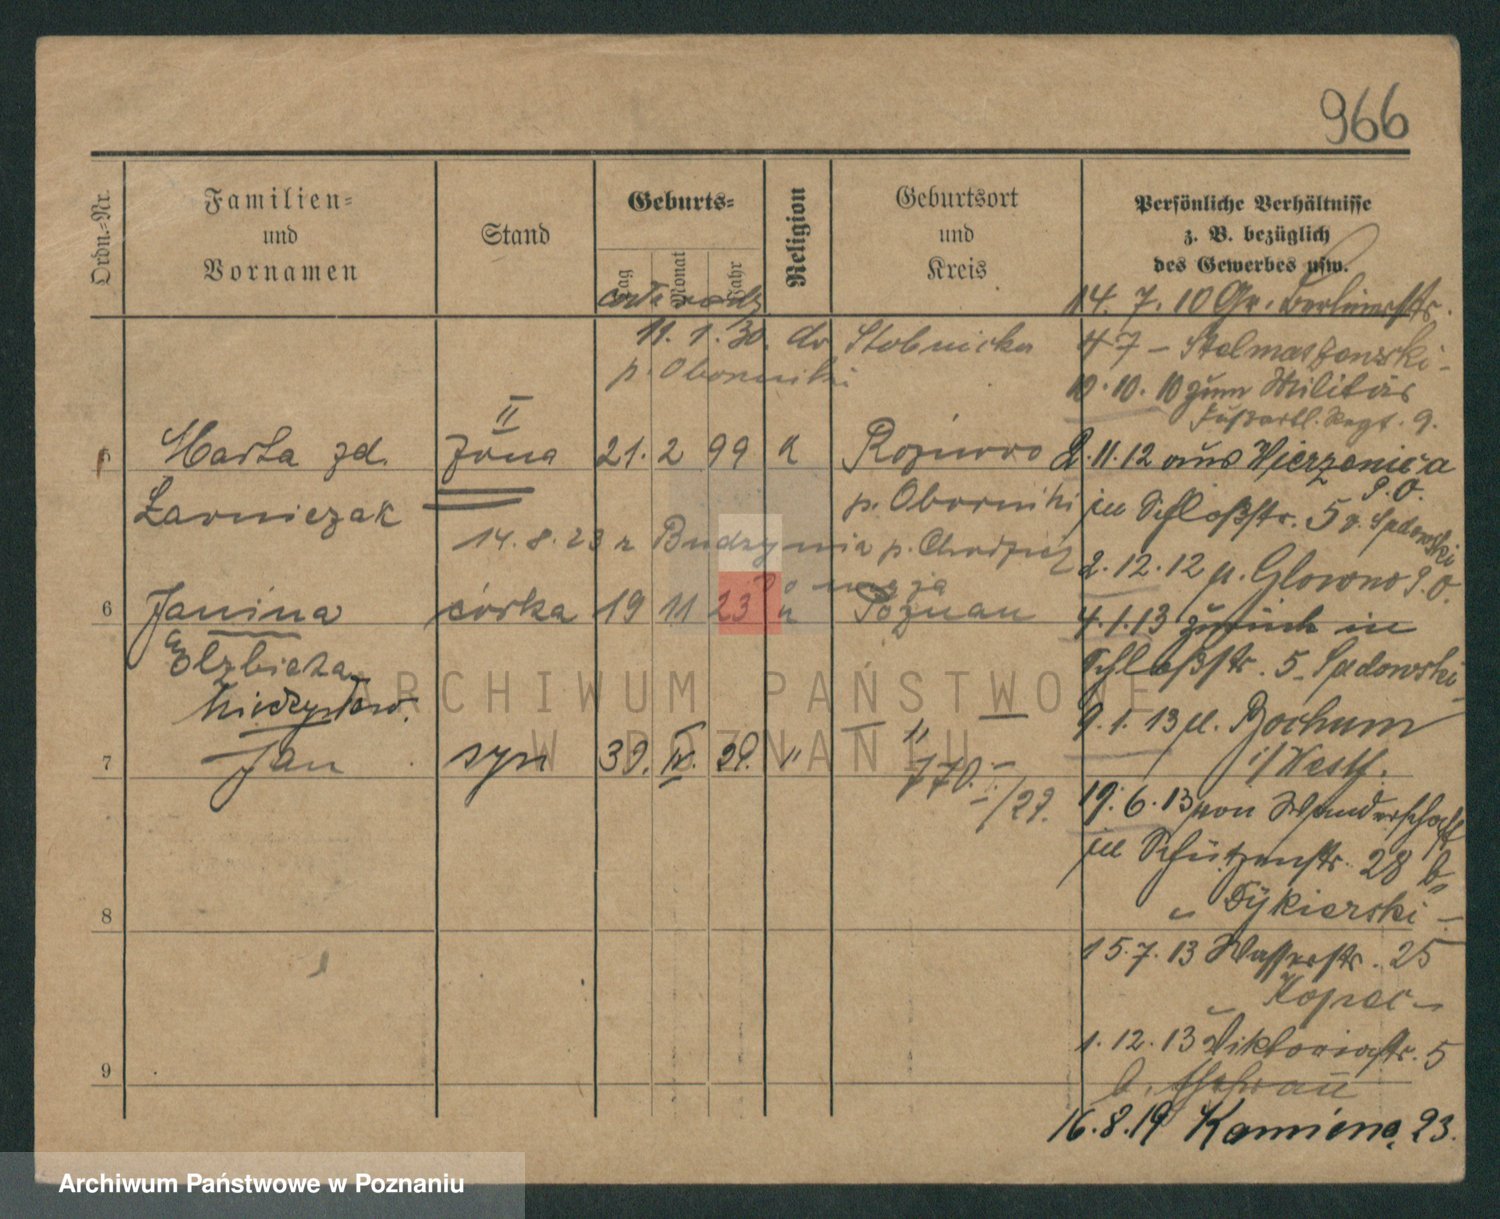 966
Ordn.-Nr.
Familien-
und
Vornamen
Stand
Geburts-
Tag
Monat
Jahr
Religion
Geburtsort
und
Kreis
Persönliche Verhältnisse
z. B. bezüglich
des Gewerbes usw.
14. 7. 10 Gr. Berlinerstr.
11. 1. 30. do Stobnicka
p. Oborniki
47 –
10. 10. 10 zum Militär
Fußartl. Regt. 9.
II
Marta zd. żona 21. 2 99 k Rożnowo
Ławniczak
p. Oborniki
14. 8. 23 z Budzynia p. Chodzież
2. 11. 12 aus Wierzenica
P. O.
in Schloßstr. 5 b. Sadowski
2. 12. 12 n. Glowno P. O.
6 Janina córka 19 11 23 k Poznań
Elżbieta
4. 1. 13 zurück in
Schloßstr. 5 Sadowski
Mieczysław
7 Jan syn 39. IV. 29. " – " –
9. 1. 13 n. Bochum
i/Westf.
770.
/29.
19. 6. 13 von Wanderschaft
in Schützenstr. 28 b
8
" Dykierski –
15. 7. 13 Wasserstr. 25
" Kopec –
1. 12. 13 Viktoriastr. 5
9
16. 8. 19 Kamienna 23.
ARCHIWUM PAŃSTWOWE
W POZNANIU
Archiwum Państwowe w Poznaniu